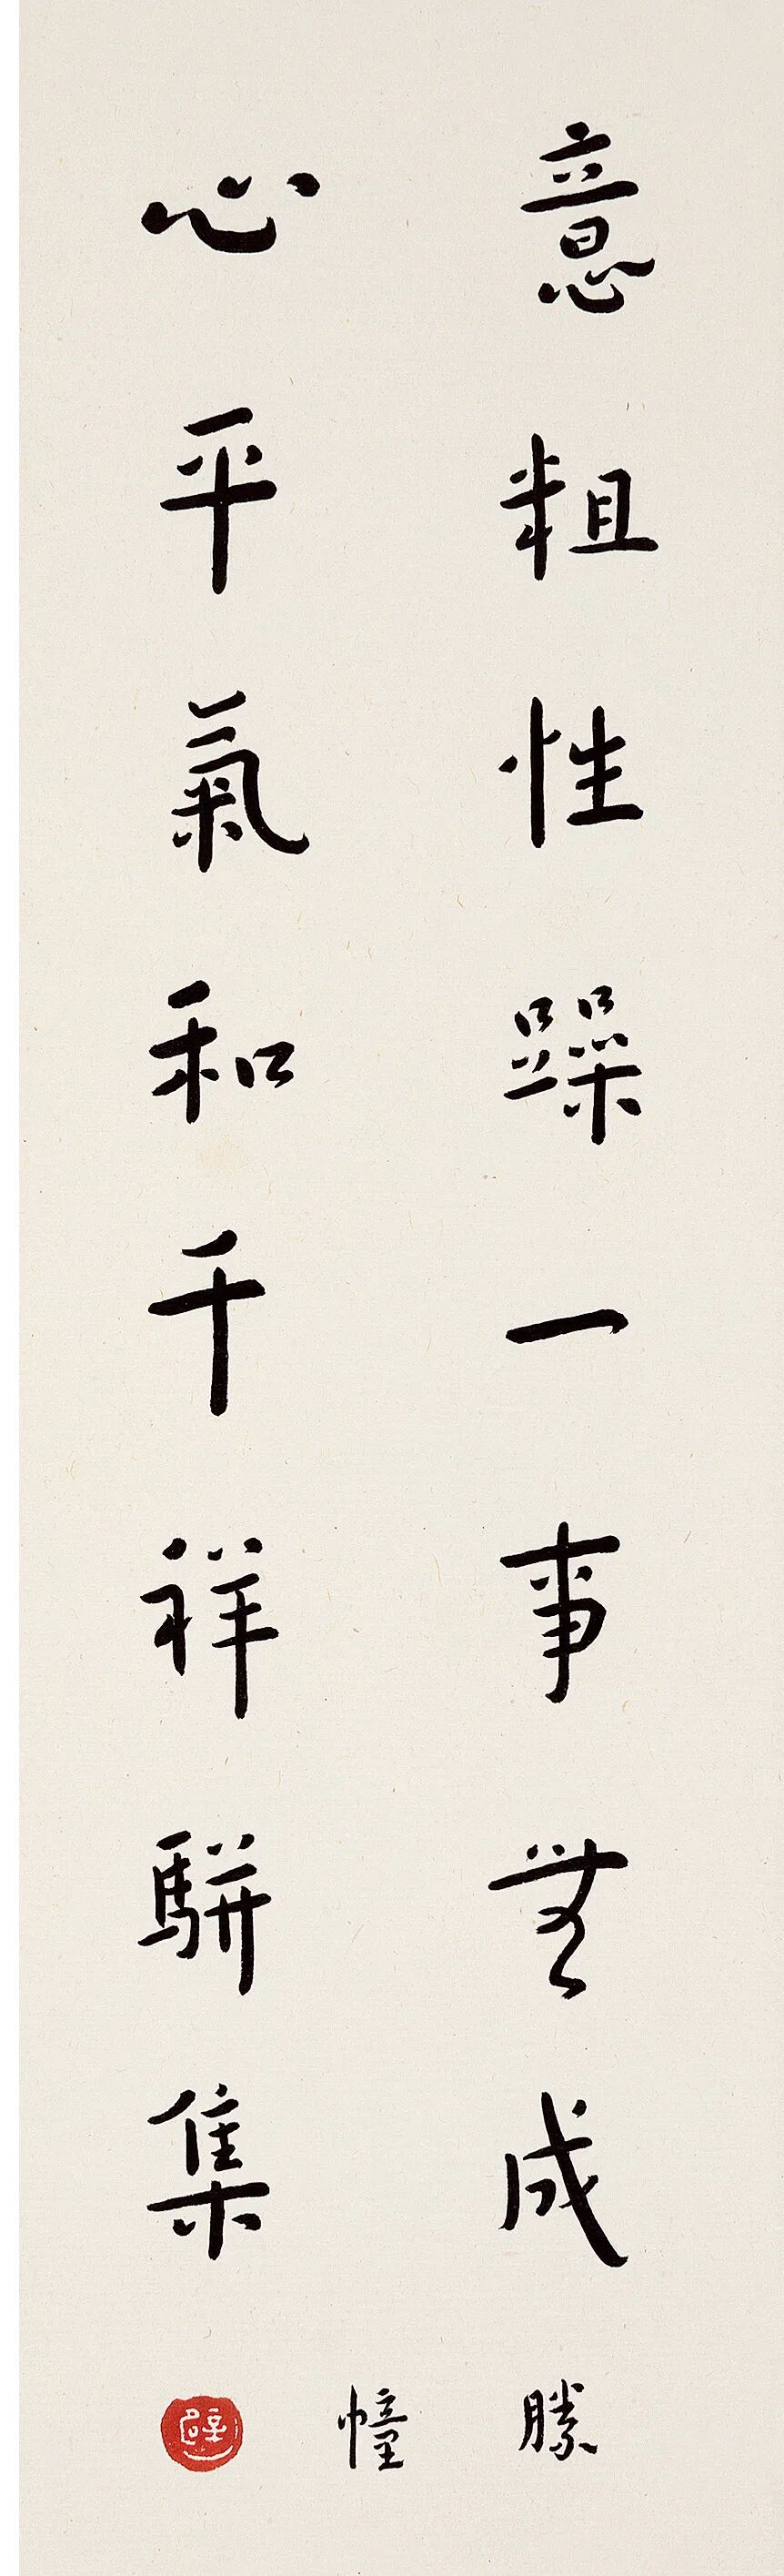 意粗性躁一事無成
心平氣和千祥駢集
勝幢